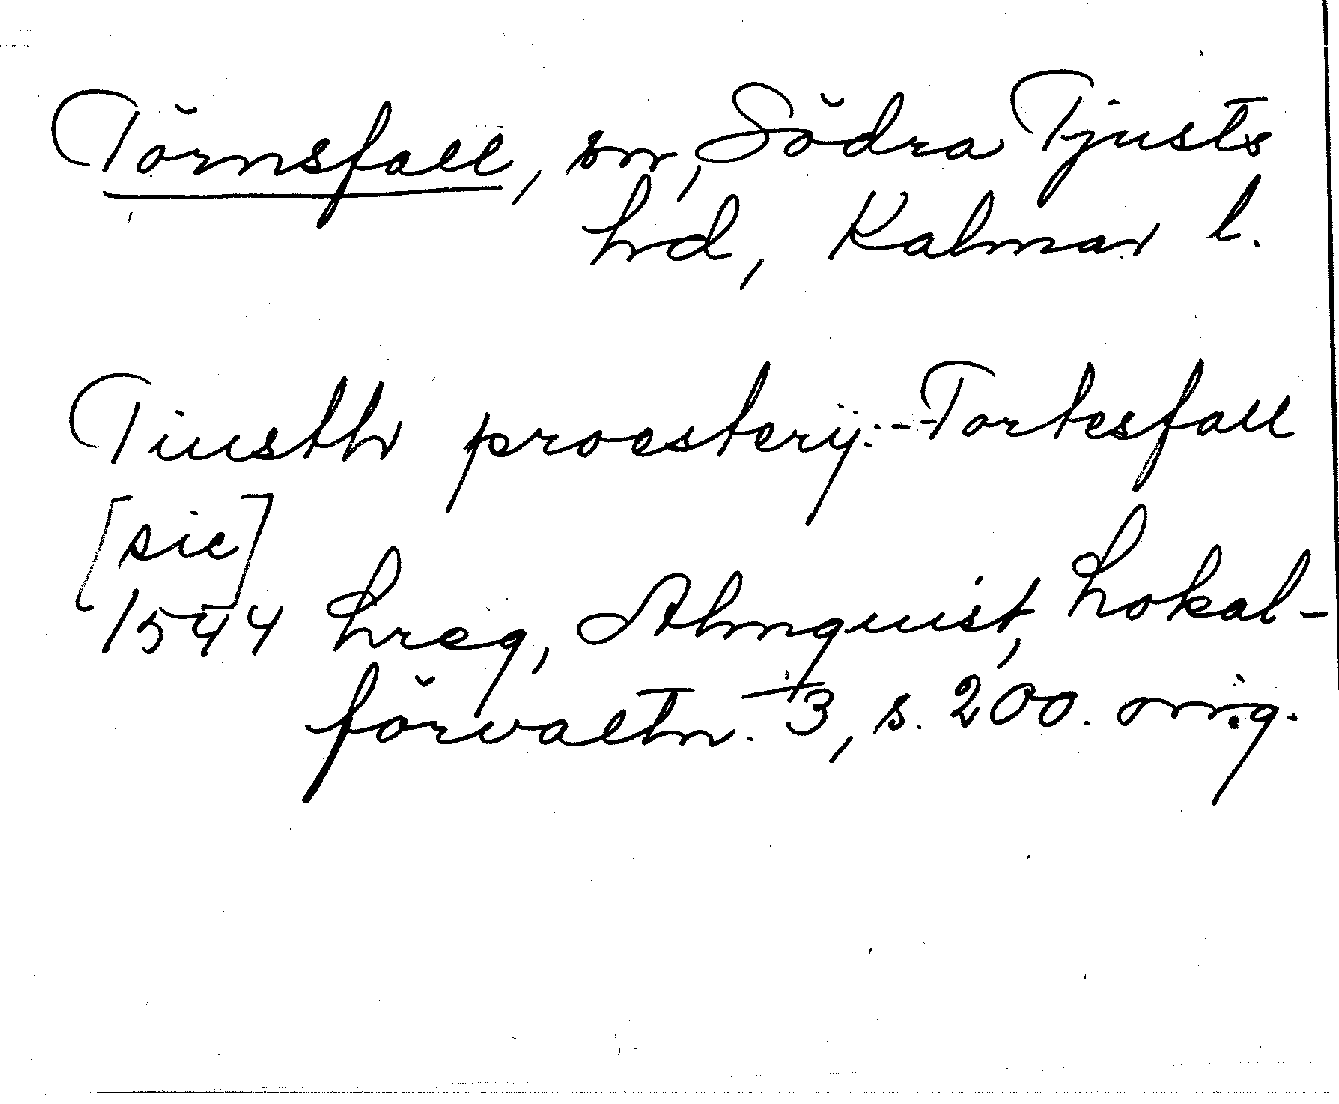 Törnsfall, sn, Södra Tjusts
hd, Kalmar l.
Tiusth proestery: -- Tortesfall
[sic]
1544 hreg, Almquist, Lokal-
förvaltn. 3, s. 200. orig.